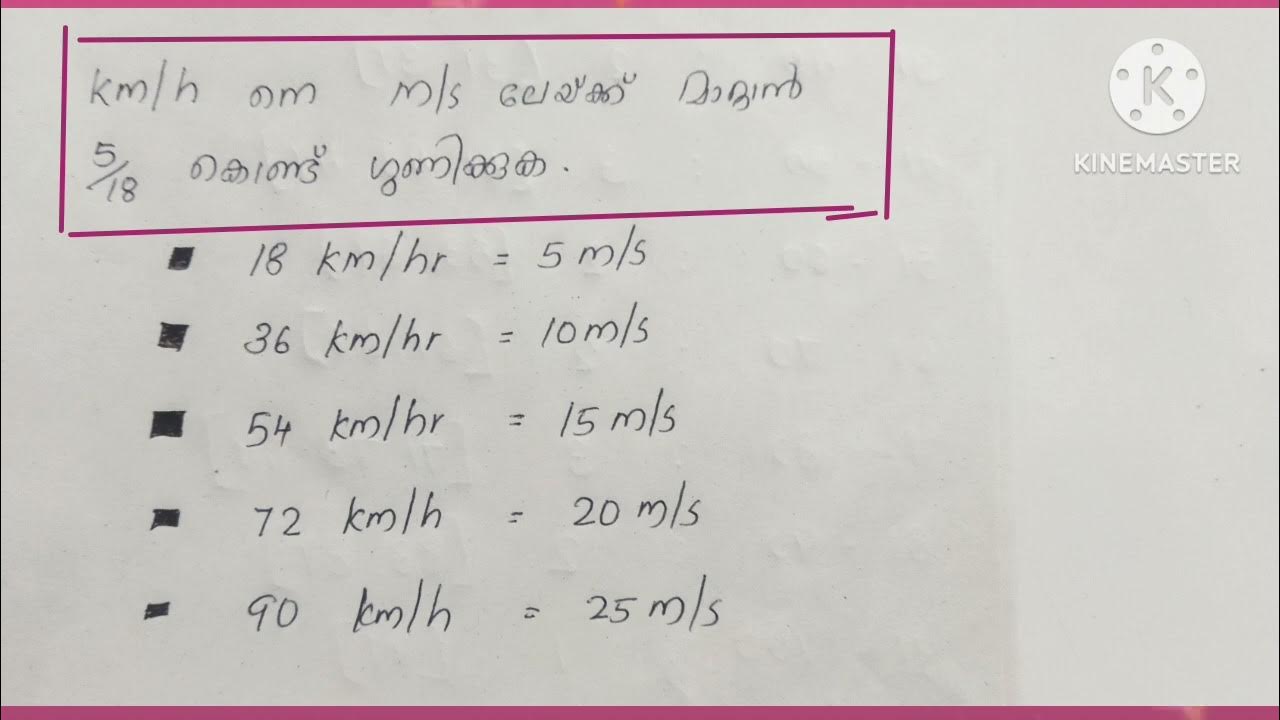 km/h നെ m/s ലേയ്ക്ക് മാറ്റാൻ
5/18 കൊണ്ട് ഗുണിക്കുക.
18 km/hr = 5 m/s
36 km/hr = 10 m/s
54 km/hr = 15 m/s
72 km/h = 20 m/s
90 km/h = 25 m/s
K
KINEMASTER